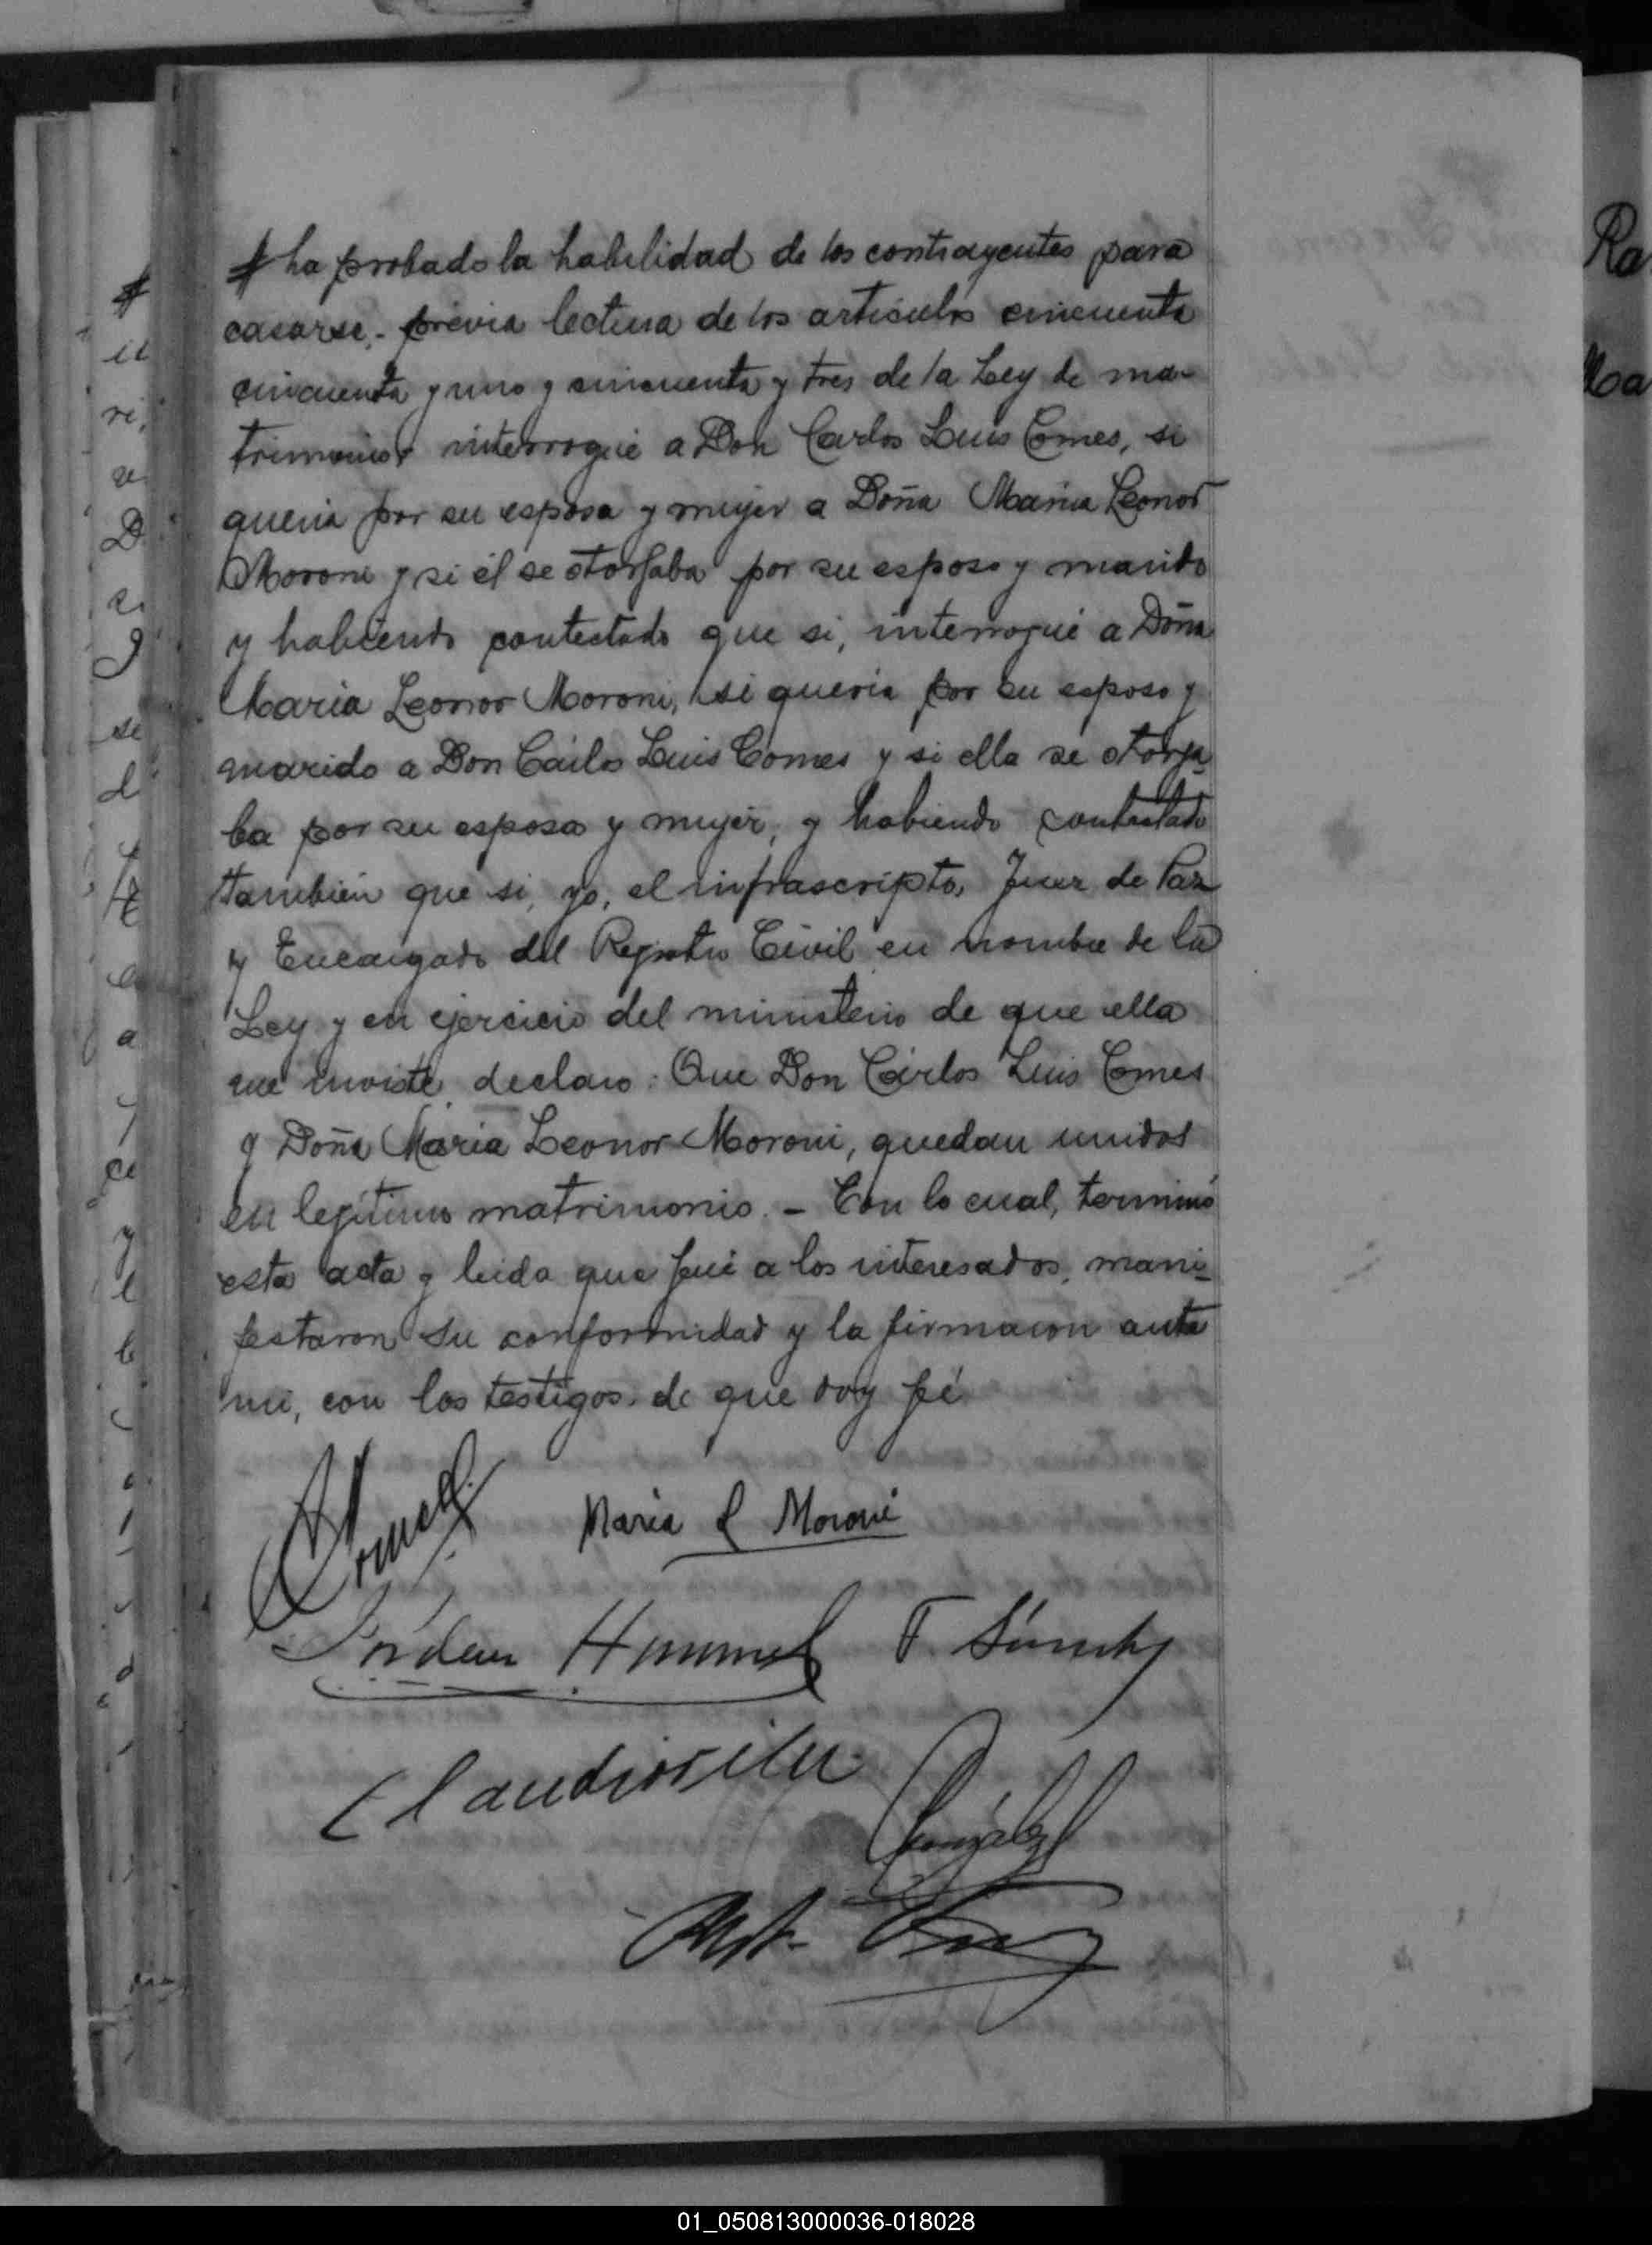 # ha probado la habilidad de los contrayentes para
casarse.- previa lectura de los articulos cincuenta
cincuenta y uno y cincuenta y tres de la Ley de ma-
trimonio, interrogué a Don Carlos Luis Comes, si
queria por su esposa y mujer a Doña Maria Leonor
Moroni y si él se otorgaba por su esposo y marido
y habiendo contestado que si, interrogué a Doña
Maria Leonor Moroni, si queria por su esposo y
marido a Don Carlos Luis Comes y si ella se otorga-
ba por su esposa y mujer, y habiendo contestado
también que si, yo, el infrascripto, Juez de Paz
y Encargado del Registro Civil en nombre de la
Ley y en ejercicio del ministerio de que ella
me inviste, declaro: Que Don Cárlos Luis Comes
y Doña Maria Leonor Moroni, quedan unidos
en legitimo matrimonio. - Con lo cual, terminó
esta acta y leida que fué a los interesados, mani-
festaron su conformidad y la firmaron ante
mi, con los testigos de que doy fé
Maria L Moroni
Hummel F. Sánchez
González
Ra
01_050813000036-018028